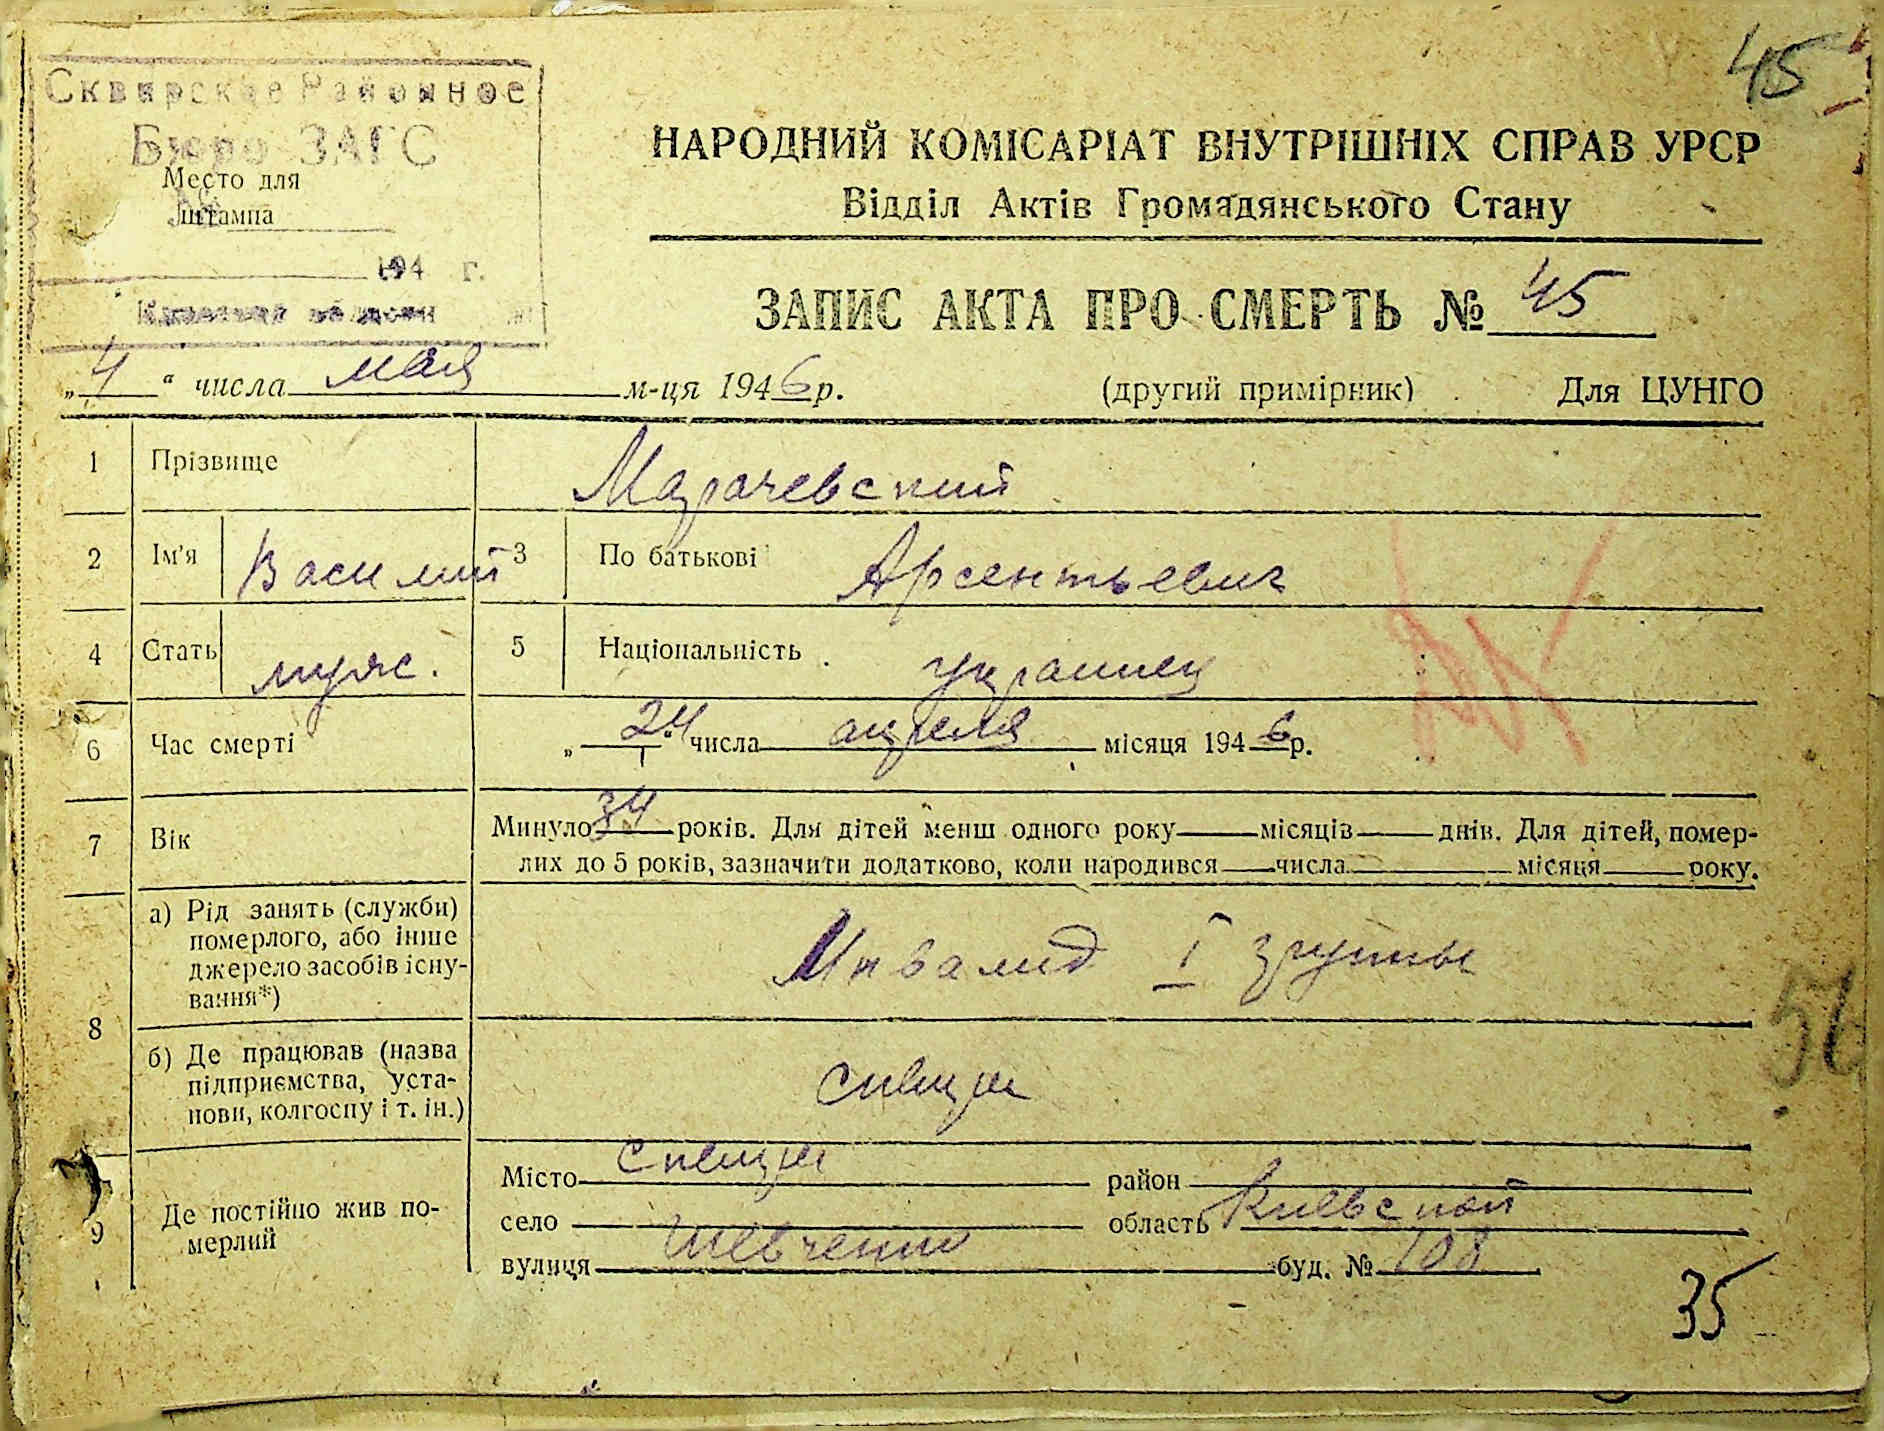 45
Сквирское Районное
Бюро ЗАГС
Место для
штампа
194 г.
НАРОДНИЙ КОМІСАРІАТ ВНУТРІШНІХ СПРАВ УРСР
Відділ Актів Громадянського Стану
ЗАПИС АКТА ПРО СМЕРТЬ № 45
„4“ числа мая м-ця 1946 р. (другий примірник) Для ЦУНГО
1 Прізвище Марачевский
2 Ім'я Василий 3 По батькові Арсентьевич
4 Стать муж. 5 Національність украинец
6 Час смерті „24“ числа апреля місяця 1946 р.
7 Вік Минуло 34 років. Для дітей менш одного року місяців днів. Для дітей, помер-
лих до 5 років, зазначити додатково, коли народився числа місяця року.
8 а) Рід занять (служби)
померлого, або інше
джерело засобів існу-
вання*)
Инвалид I группы
б) Де працював (назва
підприємства, уста-
нови, колгоспу і т. ін.)
9 Де постійно жив по-
мерлий
Місто район
село область Киевской
вулиця Шевченко буд. № 108
35